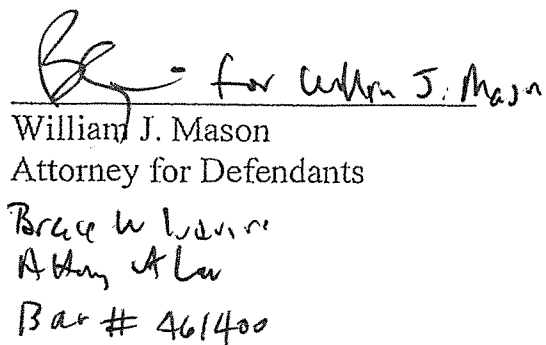 for William J. Mason
William J. Mason
Attorney for Defendants
W
Attorney At Law
Bar # 461400